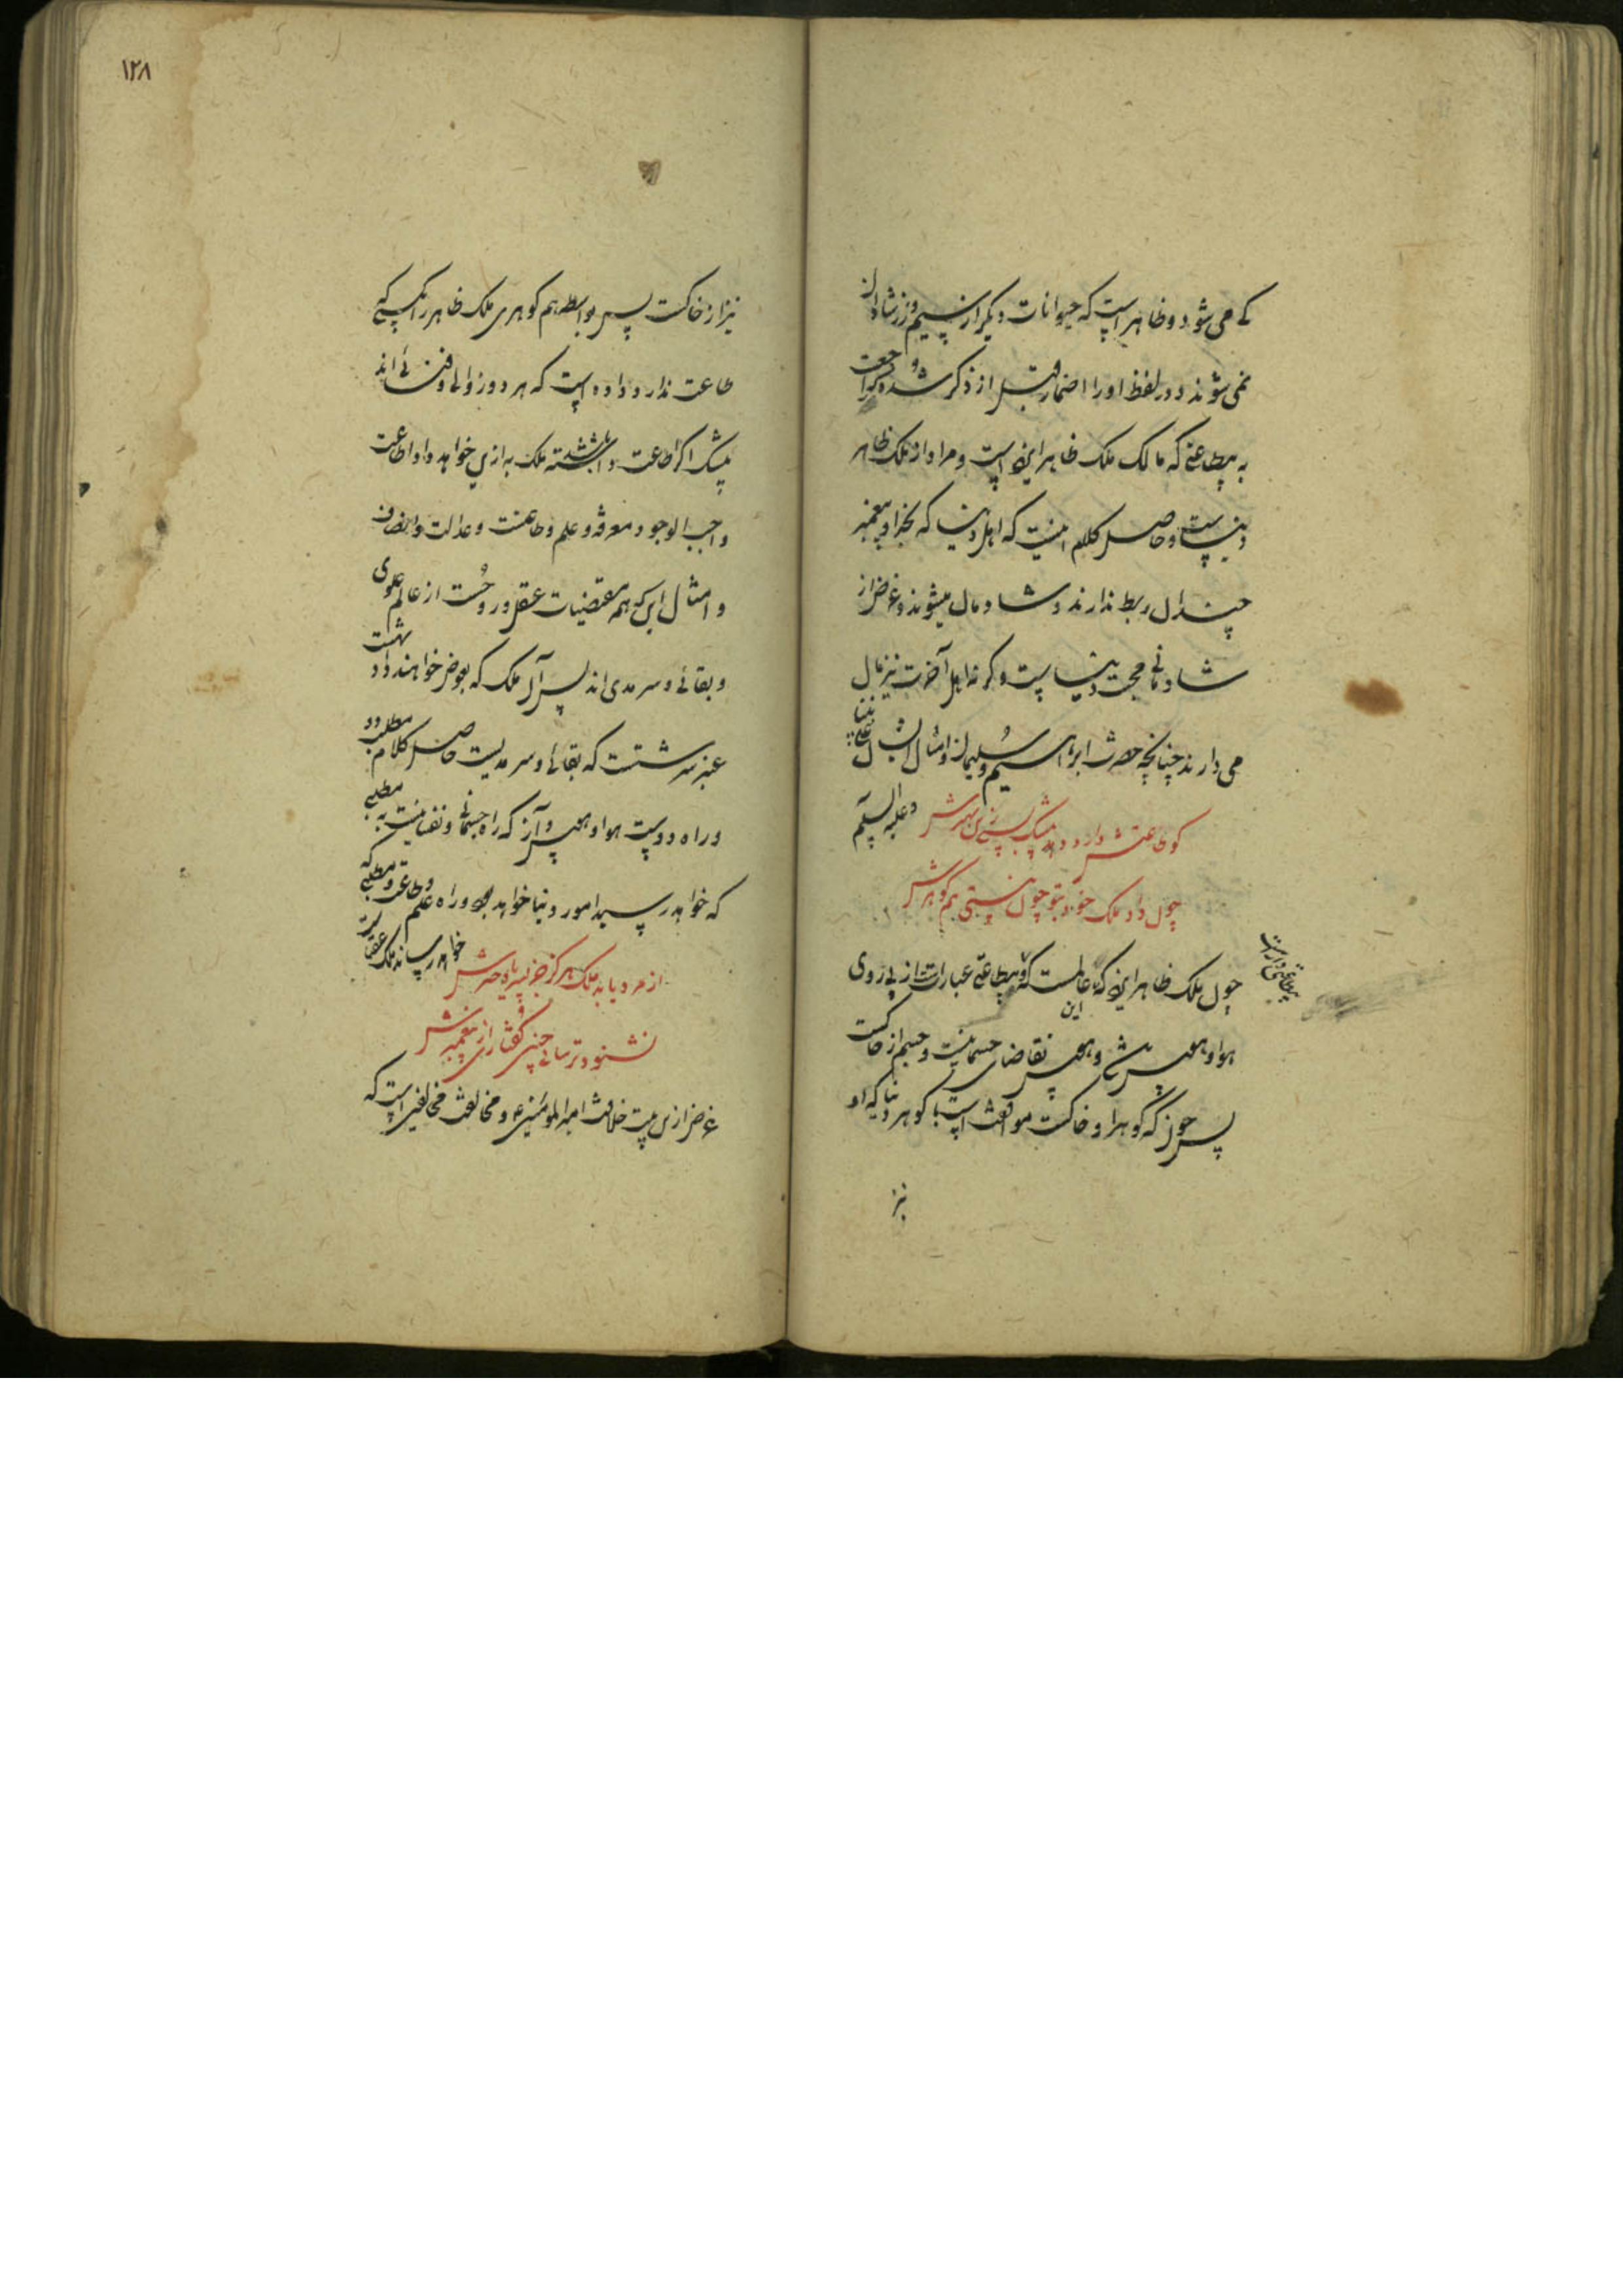 کے می شود و ظاهر است که حیوانات دیگر از سیم و زر شادان
نمی شوند و در لفظ او را اضمار قبل از ذکر شده و
به بیطاعتی که مالک ملک ظاهر این است و مراد از ملک ظاهر
دنیاست و حاصل کلام اینست که اهل دنیا که بخدا و پیغمبر
چندان ربط ندارند و شادمان میشوند و غرض از
شادمانی محبت دنیاست وگرنه اهل آخرت نیز مال
می دارند چنانچه حضرت ابراهیم و سلیمان و امثال ایشان
علی نبینا
و علیه السلام
کو طاعتش دارد دهد بیشک پس زین بهترش
چون داد ملک خود بتو چون نیستی هم گوهرش
چون ملک ظاهر این که عالمست که بیطاعتی عبارت از پی روی
بیطاعتی دارست
این
هوا و هوس و هوس تقاضای جسمانیت و جسم از خاکست
پس چون که گوهر او خاکست موافقت است با گوهر دنیا که او
نیز
۱۲۸
نیز از خاکست پس بواسطه هم گوهری ملک ظاهر را بکسی که
طاعت ندارد داده است که هر دو زوالی و فنائی اند
بیشک اگر طاعت داشته باشد ملک به ازین خواهد داد اطاعت
واجب الوجود و معرفة و علم و طاعت و عدالت و انصاف
و امثال این که همه مقتضیات عقل و روحست از عالم علوی
و بقائی و سرمدی اند پس آن ملک که بعوض خواهند داد بهشت
عنبر سرشتست که بقائی و سرمدیست حاصل کلام
در راه دوست هوا و هوس و آز که راه جسمانی و نفسانیت به مطلبی
که خواهد رسید امور دنیا خواهد بود و راه علم و طاعت و مطلبی که
خواهد رساند ملک عقباست
از مرد یابد ملک هرگز جز پسر یا دخترش
نشنود ترسائی چنین گفتاری از پیغمبرش
غرض ازین بیت خلافت امیر المؤمنین و مخالفت مخالفین است که